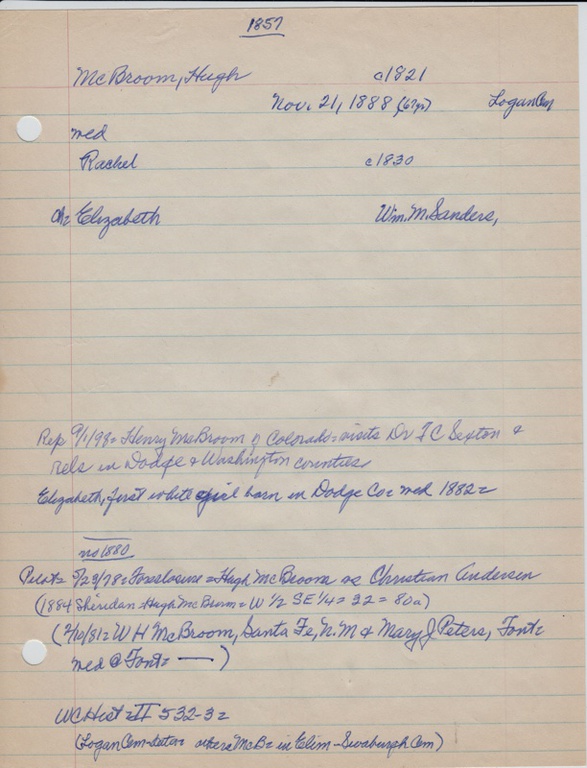 1857
McBroom, Hugh c1821
Nov. 21, 1888 (67yr) Logan Cem
med
Rachel c1830
Ch= Elizabeth Wm. M. Sanders,
Rep 9/1/98= Henry McBroom of Colorado= visits Dr I C Sexton &
rels in Dodge & Washington counties
Elizabeth, first white girl born in Dodge Co= med 1882=
no 1880
Pilot= 5/23/78= Foreclosure= Hugh McBroom vs Christian Andersen
(1884 Sheridan= Hugh McBroom= W 1/2 SE 1/4= 32= 80a)
(2/10/81= W H McBroom, Santa Fe, N.M & Mary J Peters, Font=
med @ Font= — )
WC Hist= II 532-3=
(Logan Cem= others McB= in Elim-Swaburgh Cem)